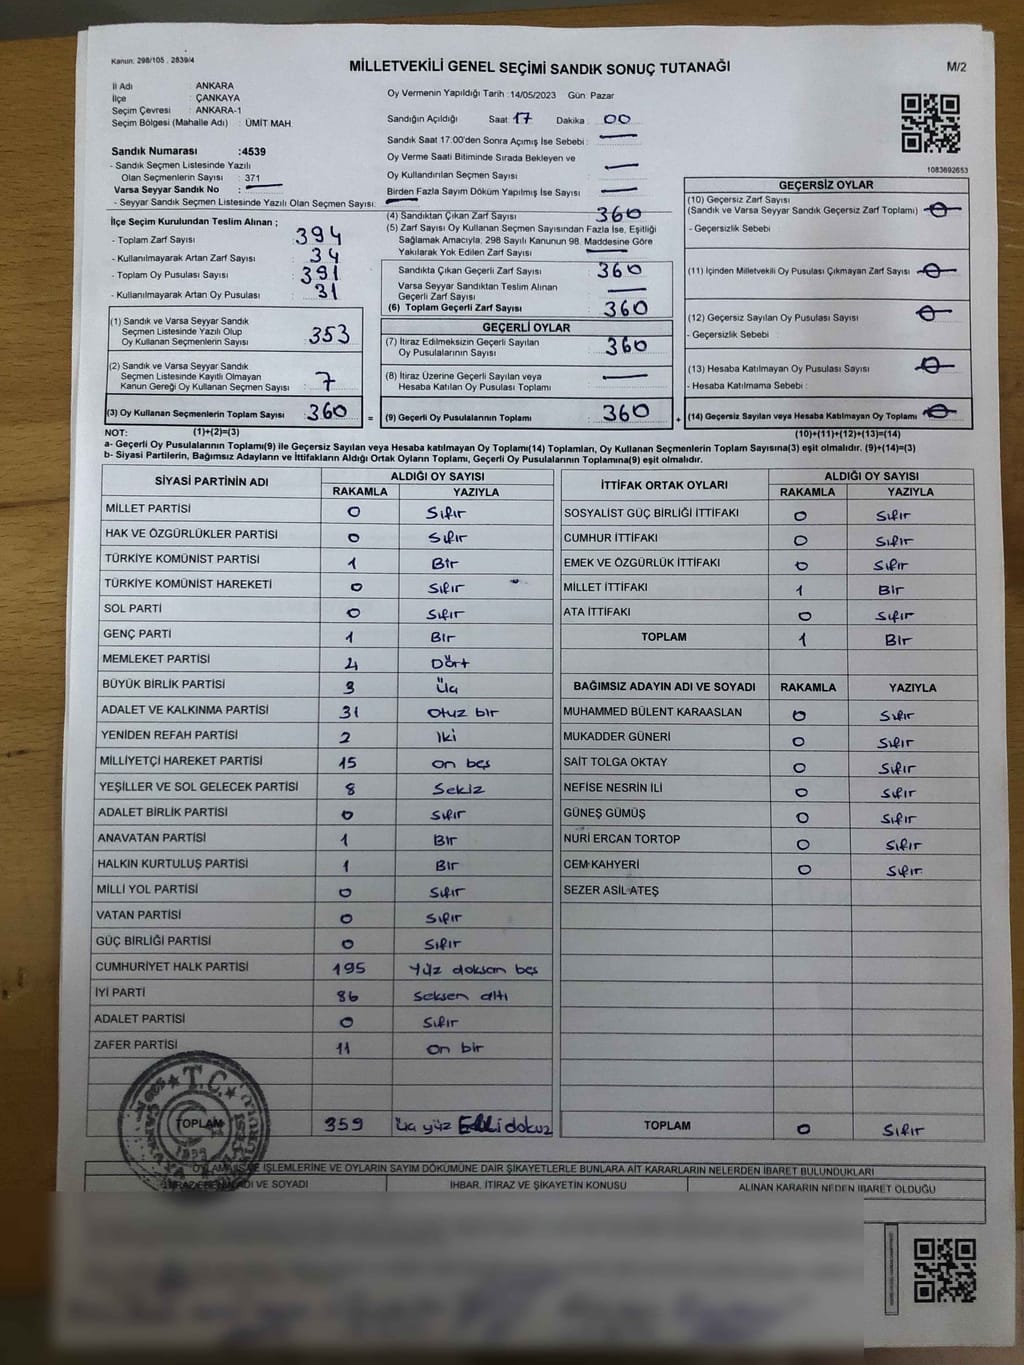 Kanun. 298/105 , 2839/4
MİLLETVEKİLİ GENEL SEÇİMİ SANDIK SONUÇ TUTANAĞI
M/2
İl Adı : ANKARA
İlçe : ÇANKAYA
Seçim Çevresi : ANKARA-1
Seçim Bölgesi (Mahalle Adı) : ÜMİT MAH.
Oy Vermenin Yapıldığı Tarih :14/05/2023 Gün: Pazar
Sandığın Açıldığı Saat 17 Dakika : 00
Sandık Saat 17:00'den Sonra Açımış İse Sebebi : —
Oy Verme Saati Bitiminde Sırada Bekleyen ve
Oy Kullandırılan Seçmen Sayısı : —
Birden Fazla Sayım Döküm Yapılmış İse Sayısı —
1083692653
Sandık Numarası :4539
- Sandık Seçmen Listesinde Yazılı
Olan Seçmenlerin Sayısı : 371
Varsa Seyyar Sandık No : —
- Seyyar Sandık Seçmen Listesinde Yazılı Olan Seçmen Sayısı: —
İlçe Seçim Kurulundan Teslim Alınan ;
- Toplam Zarf Sayısı : 394
- Kullanılmayarak Artan Zarf Sayısı : 34
- Toplam Oy Pusulası Sayısı : 391
- Kullanılmayarak Artan Oy Pusulası : 31
(1) Sandık ve Varsa Seyyar Sandık
Seçmen Listesinde Yazılı Olup
Oy Kullanan Seçmenlerin Sayısı : 353
(2) Sandık ve Varsa Seyyar Sandık
Seçmen Listesinde Kayıtlı Olmayan
Kanun Gereği Oy Kullanan Seçmen Sayısı : 7
(3) Oy Kullanan Seçmenlerin Toplam Sayısı : 360 =
(4) Sandıktan Çıkan Zarf Sayısı : 360
(5) Zarf Sayısı Oy Kullanan Seçmen Sayısından Fazla İse, Eşitliği
Sağlamak Amacıyla; 298 Sayılı Kanunun 98. Maddesine Göre
Yakılarak Yok Edilen Zarf Sayısı : —
Sandıkta Çıkan Geçerli Zarf Sayısı : 360
Varsa Seyyar Sandıktan Teslim Alınan
Geçerli Zarf Sayısı : —
(6) Toplam Geçerli Zarf Sayısı : 360
GEÇERLİ OYLAR
(7) İtiraz Edilmeksizin Geçerli Sayılan
Oy Pusulalarının Sayısı : 360
(8) İtiraz Üzerine Geçerli Sayılan veya
Hesaba Katılan Oy Pusulası Toplamı : —
(9) Geçerli Oy Pusulalarının Toplamı : 360 +
GEÇERSİZ OYLAR
(10) Geçersiz Zarf Sayısı
(Sandık ve Varsa Seyyar Sandık Geçersiz Zarf Toplamı) : 0
- Geçersizlik Sebebi :
(11) İçinden Milletvekili Oy Pusulası Çıkmayan Zarf Sayısı : 0
(12) Geçersiz Sayılan Oy Pusulası Sayısı : 0
- Geçersizlik Sebebi :
(13) Hesaba Katılmayan Oy Pusulası Sayısı : 0
- Hesaba Katılmama Sebebi :
(14) Geçersiz Sayılan veya Hesaba Katılmayan Oy Toplamı : 0
NOT: (1)+(2)=(3) (10)+(11)+(12)+(13)=(14)
a- Geçerli Oy Pusulalarının Toplamı(9) ile Geçersiz Sayılan veya Hesaba katılmayan Oy Toplamı(14) Toplamları, Oy Kullanan Seçmenlerin Toplam Sayısına(3) eşit olmalıdır. (9)+(14)=(3)
b- Siyasi Partilerin, Bağımsız Adayların ve İttifakların Aldığı Ortak Oyların Toplamı, Geçerli Oy Pusulalarının Toplamına(9) eşit olmalıdır.
SİYASİ PARTİNİN ADI ALDIĞI OY SAYISI
RAKAMLA YAZIYLA
MİLLET PARTİSİ 0 Sıfır
HAK VE ÖZGÜRLÜKLER PARTİSİ 0 Sıfır
TÜRKİYE KOMÜNİST PARTİSİ 1 Bir
TÜRKİYE KOMÜNİST HAREKETİ 0 Sıfır
SOL PARTİ 0 Sıfır
GENÇ PARTİ 1 Bir
MEMLEKET PARTİSİ 4 Dört
BÜYÜK BİRLİK PARTİSİ 3 Üç
ADALET VE KALKINMA PARTİSİ 31 Otuz bir
YENİDEN REFAH PARTİSİ 2 İki
MİLLİYETÇİ HAREKET PARTİSİ 15 on beş
YEŞİLLER VE SOL GELECEK PARTİSİ 8 Sekiz
ADALET BİRLİK PARTİSİ 0 Sıfır
ANAVATAN PARTİSİ 1 Bir
HALKIN KURTULUŞ PARTİSİ 1 Bir
MİLLİ YOL PARTİSİ 0 Sıfır
VATAN PARTİSİ 0 Sıfır
GÜÇ BİRLİĞİ PARTİSİ 0 Sıfır
CUMHURİYET HALK PARTİSİ 195 Yüz doksan beş
İYİ PARTİ 86 Seksen altı
ADALET PARTİSİ 0 Sıfır
ZAFER PARTİSİ 11 On bir
TOPLAM 359 Üç yüz Elli dokuz
İTTİFAK ORTAK OYLARI ALDIĞI OY SAYISI
RAKAMLA YAZIYLA
SOSYALİST GÜÇ BİRLİĞİ İTTİFAKI 0 Sıfır
CUMHUR İTTİFAKI 0 Sıfır
EMEK VE ÖZGÜRLÜK İTTİFAKI 0 Sıfır
MİLLET İTTİFAKI 1 Bir
ATA İTTİFAKI 0 Sıfır
TOPLAM 1 Bir
BAĞIMSIZ ADAYIN ADI VE SOYADI RAKAMLA YAZIYLA
MUHAMMED BÜLENT KARAASLAN 0 Sıfır
MUKADDER GÜNERİ 0 Sıfır
SAİT TOLGA OKTAY 0 Sıfır
NEFİSE NESRİN İLİ 0 Sıfır
GÜNEŞ GÜMÜŞ 0 Sıfır
NURİ ERCAN TORTOP 0 Sıfır
CEM KAHYERİ 0 Sıfır
SEZER ASİL ATEŞ
TOPLAM 0 Sıfır
T.C.
OYLAMA İŞLEMLERİNE VE OYLARIN SAYIM DÖKÜMÜNE DAİR ŞİKAYETLERLE BUNLARA AİT KARARLARIN NELERDEN İBARET BULUNDUKLARI
ADI VE SOYADI İHBAR, İTİRAZ VE ŞİKAYETİN KONUSU ALINAN KARARIN NEDEN İBARET OLDUĞU